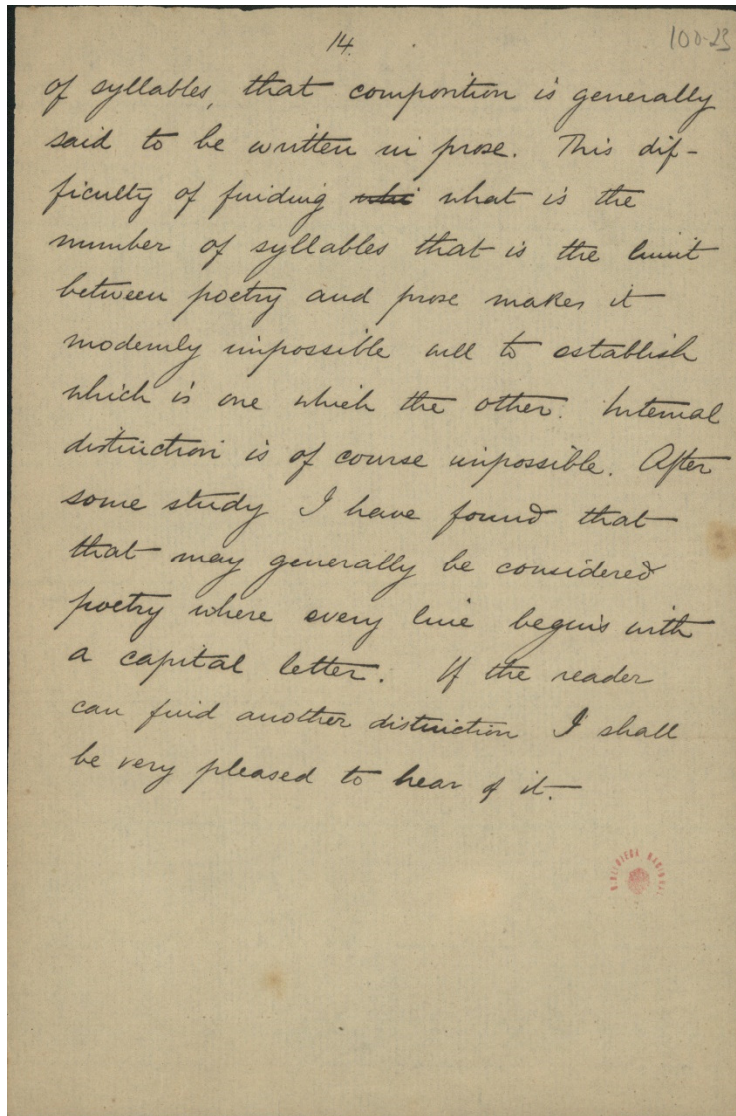 14.
100-23
of syllables, that composition is generally
said to be written in prose. This dif-
ficulty of finding whi what is the
number of syllables that is the limit
between poetry and prose makes it
modernly impossible well to establish
which is one which the other. Internal
distinction is of course impossible. After
some study I have found that
that may generally be considered
poetry where every line begins with
a capital letter. If the reader
can find another distinction I shall
be very pleased to hear of it.
BIBLIOTECA NACIONAL